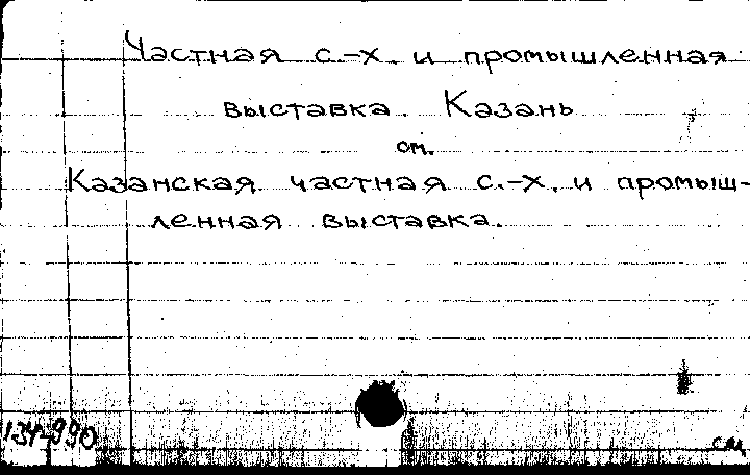 Частная с.-х. и промышленная
выставка. Казань
см.
Казанская частная с.-х. и промыш-
ленная выставка.